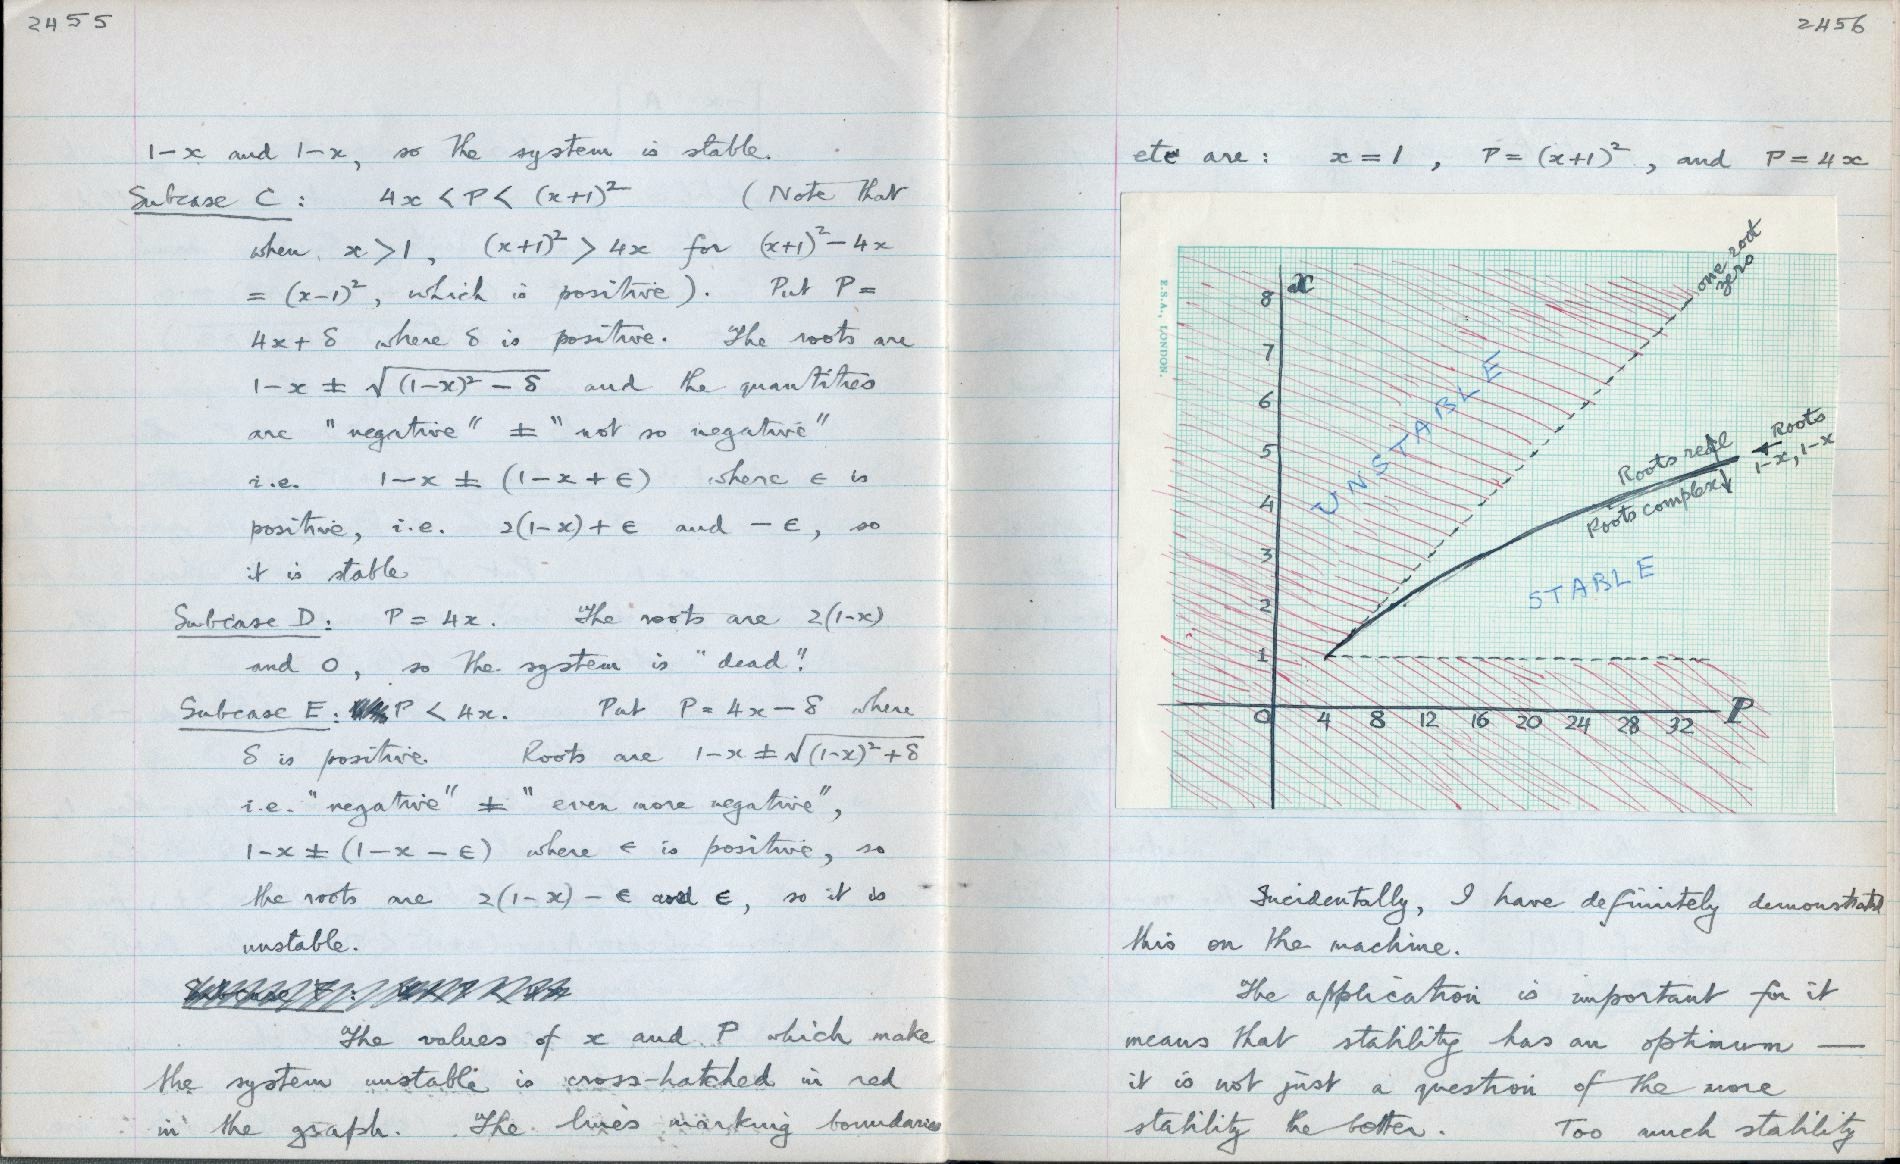 2455
1-x and 1-x, so the system is stable.
Subcase C: 4x < P < (x+1)² (Note that
when x > 1, (x+1)² > 4x for (x+1)² - 4x
= (x-1)², which is positive). Put P =
4x + δ where δ is positive. The roots are
1-x ± √(1-x)² - δ and the quantities
are "negative" ± "not so negative"
i.e. 1-x ± (1-x+ε) where ε is
positive, i.e. 2(1-x)+ε and -ε, so
it is stable
Subcase D: P = 4x. The roots are 2(1-x)
and 0, so the system is "dead".
Subcase E: P < 4x. Put P = 4x - δ where
δ is positive. Roots are 1-x ± √(1-x)² + δ
i.e. "negative" ± "even more negative",
1-x ± (1-x-ε) where ε is positive, so
the roots are 2(1-x) - ε and ε, so it is
unstable.
The values of x and P which make
the system unstable is cross-hatched in red
in the graph. The lines marking boundaries
2456
etc are: x = 1, P = (x+1)², and P = 4x
one root
zero
E.S.A., LONDON
x
8
7
6
5
4
3
2
1
0
4 8 12 16 20 24 28 32 P
UNSTABLE
Roots real
Roots complex
Roots
1-x, 1-x
STABLE
Incidentally, I have definitely demonstrated
this on the machine.
The application is important for it
means that stability has an optimum —
it is not just a question of the more
stability the better. Too much stability